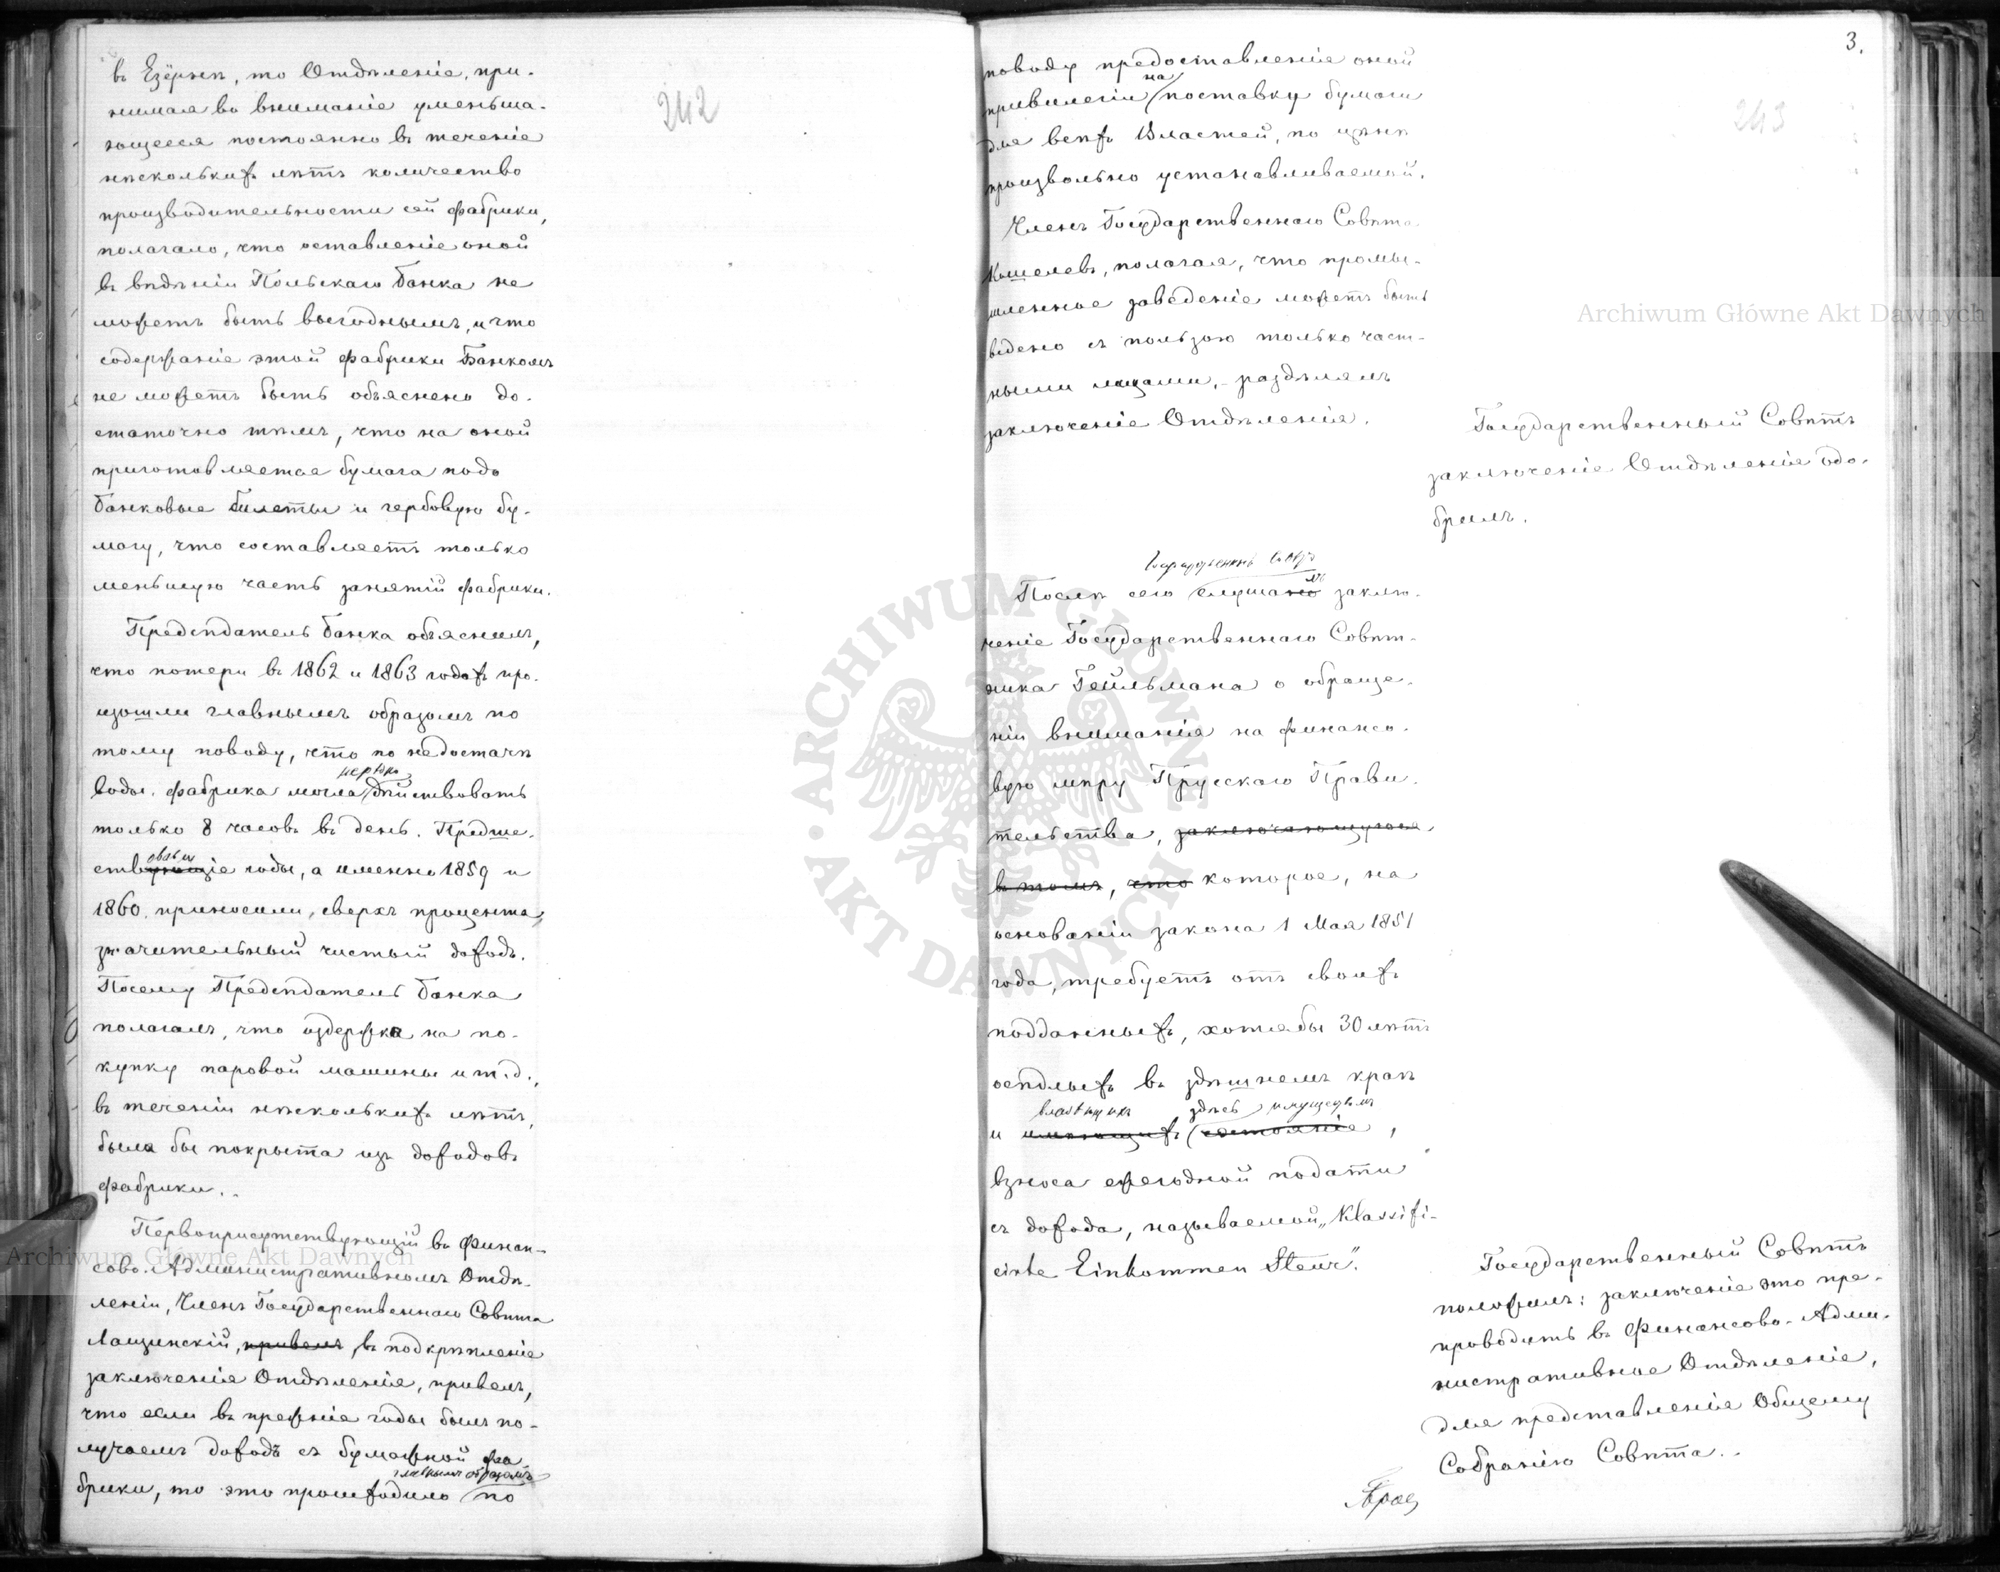 242
въ Езёрнѣ, то Отдѣленіе, при-
нимая во вниманіе уменьша-
ющееся постоянно въ теченіе
нѣсколькихъ лѣтъ количество
производительности сей фабрики,
полагало, что оставленіе оной
въ вѣдѣніи Польскаго Банка не
можетъ быть выгоднымъ, и что
содержаніе этой фабрики Банкомъ
не можетъ быть объяснено до-
статочно тѣмъ, что на оной
приготовляется бумага подъ
Банковые билеты и гербовую бу-
магу, что составляетъ только
меньшую часть занятій фабрики.
Предсѣдатель Банка объяснилъ,
что потери въ 1862 и 1863 годахъ про-
изошли главнымъ образомъ по
тому поводу, что по недостачѣ
нерѣдко
воды, фабрика могла дѣйствовать
только 8 часовъ въ день. Предше-
овавш
ствующіе годы, а именно 1859 и
1860. приносили, сверхъ процента,
значительный чистый доходъ.
Посему Предсѣдатель Банка
полагалъ, что издержка на по-
купку паровой машины и т.д.,
въ теченіи нѣсколькихъ лѣтъ,
была бы покрыта изъ доходовъ
фабрики.
Первоприсутствующій въ Финан-
сово-Административномъ Отдѣ-
леніи, Членъ Государственнаго Совѣта
Лащинскій, привелъ, въ подкрѣпленіе
заключенія Отдѣленія, привелъ,
что если въ прежніе годы былъ по-
лучаемъ доходъ съ бумажной фа
главнымъ образомъ
брики, то это происходило по
3.
243
поводу предоставленія оной
на
привилегіи поставку бумаги
для всѣхъ Властей, по цѣнѣ
произвольно устанавливаемой.
Членъ Государственнаго Совѣта
Кошелевъ, полагая, что промы-
шленное заведеніе можетъ быть
ведено съ пользою только част-
ными лицами, раздѣлялъ
заключеніе Отдѣленія.
Государственный Совѣтъ
заключеніе Отдѣленія одо-
брилъ.
Государственный Совѣтъ
лъ
Послѣ сего слушано заклю-
ченіе Государственнаго Совѣт-
ника Гейльмана о обраще-
ніи вниманія на финансо-
вую мѣру Прусскаго Прави-
тельства, заключающуюся
въ томъ, что которое, на
основаніи закона 1 Мая 1851
года, требуетъ отъ своихъ
подданныхъ, хотя бы 30 лѣтъ
осѣдлыхъ въ здѣшнемъ краѣ
владѣющихъ здѣсь имуществомъ
и имеющихъ состояніе,
взноса ежегодной подати
съ дохода, называемой „Klassifi-
cirte Einkommen Steur“.
Государственный Совѣтъ
положилъ: заключеніе это пре-
проводить въ Финансово-Адми-
нистративное Отдѣленіе,
для представленія Общему
Собранію Совѣта.
Archiwum Główne Akt Dawnych
Archiwum Główne Akt Dawnych
ARCHIWUM GŁÓWNE AKT DAWNYCH